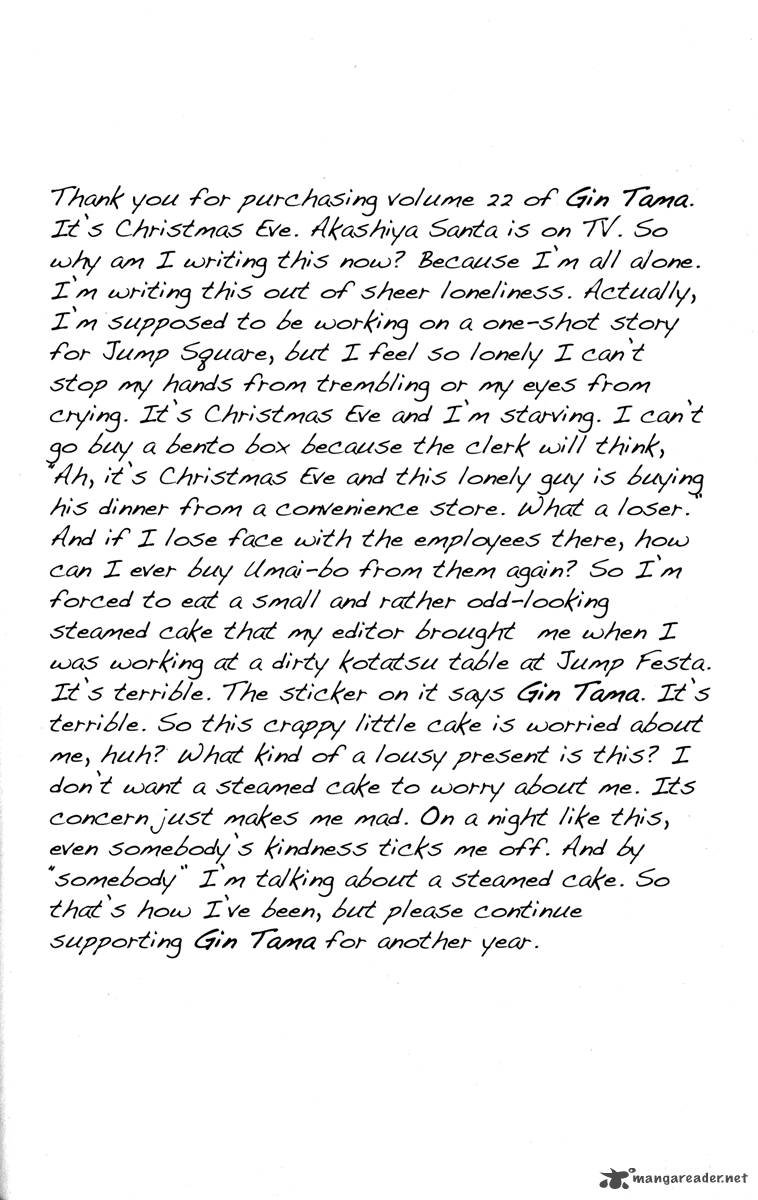 Thank you for purchasing volume 22 of Gin Tama.
It's Christmas Eve. Akashiya Santa is on TV. So
why am I writing this now? Because I'm all alone.
I'm writing this out of sheer loneliness. Actually,
I'm supposed to be working on a one-shot story
for Jump Square, but I feel so lonely I can't
stop my hands from trembling or my eyes from
crying. It's Christmas Eve and I'm starving. I can't
go buy a bento box because the clerk will think,
"Ah, it's Christmas Eve and this lonely guy is buying
his dinner from a convenience store. What a loser."
And if I lose face with the employees there, how
can I ever buy Umai-bo from them again? So I'm
forced to eat a small and rather odd-looking
steamed cake that my editor brought me when I
was working at a dirty kotatsu table at Jump Festa.
It's terrible. The sticker on it says Gin Tama. It's
terrible. So this crappy little cake is worried about
me, huh? What kind of a lousy present is this? I
don't want a steamed cake to worry about me. Its
concern just makes me mad. On a night like this,
even somebody's kindness ticks me off. And by
"somebody" I'm talking about a steamed cake. So
that's how I've been, but please continue
supporting Gin Tama for another year.
mangareader.net